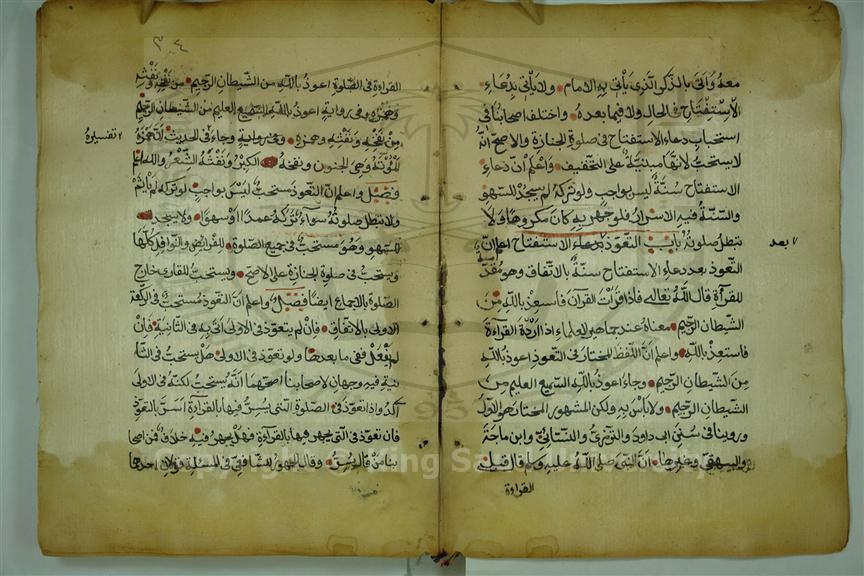 معه وأتى بالذكر الذي يأتي به الامام ولا يأتي بدعاء
الاستفتاح في الحال ولا فيما بعده واختلف اصحابنا في
استحباب دعاء الاستفتاح في صلوة الجنازة والاصح انه
لا يستحب لانها مبنية على التخفيف واعلم ان دعاء
الاستفتاح سنة ليس بواجب ولو تركه لم يسجد للسهو
والسنة فيه الاسرار فلو جهر به كان مكروها ولا
تبطل صلوته باب التعوذ بعد دعاء الاستفتاح اعلم ان
بعد
التعوذ بعد دعاء الاستفتاح سنة بالاتفاق وهو مقدمة
للقرآءة قال الله تعالى فاذا قرأت القرآن فاستعذ بالله من
الشيطان الرجيم معناه عند جماهير العلماء اذا اردت القراءة
فاستعذ بالله واعلم ان اللفظ المختار في التعوذ اعوذ بالله
من الشيطان الرجيم وجاء اعوذ بالله السميع العليم من
الشيطان الرجيم ولا بأس به ولكن المشهور المختار هو الاول
وروينا في سنن ابي داود والترمذي والنسائي وابن ماجة
والبيهقي وغيرها ان النبي صلى الله عليه وسلم قال قبل
القراءة
القراءة في الصلوة اعوذ بالله من الشيطان الرجيم من نفخه ونفثه
وهمزه وفي رواية اعوذ بالله السميع العليم من الشيطان الرجيم
من نفخه ونفثه وهمزه وفي رواية وجاء في الحديث ان همزه
تفسيره
المؤتة وهي الجنون ونفخه الكبر ونفثه الشعر والله اعلم
فصل واعلم ان التعوذ مستحب ليس بواجب لو تركه لم يأثم
ولا تبطل صلوته سواء تركه عمدا او سهوا ولا يسجد
للسهو وهو مستحب في جميع الصلوة للفرائض والنوافل كلها
ويستحب في صلوة الجنازة على الاصح ويستحب للقارئ خارج
الصلوة بالاجماع ايضا فصل واعلم ان التعوذ مستحب في الركعة
الاولى بالاتفاق فان لم يتعوذ في الاولى اتى به في الثانية فان
لم يفعل ففي ما بعدها ولو تعوذ في الاولى هل يستحب في الثا
نية فيه وجهان لاصحابنا اصحهما انه يستحب لكنه في الاولى
آكد واذا تعوذ في الصلوة التي يسر فيها بالقرآءة اسر بالتعوذ
فان تعوذ في التي يجهر فيها بالقراءة فهل يجهر فيه خلاف فمن اصحا
بنا من قال يسر وقال الجمهور للشافعي في المسئلة قولان احدهما